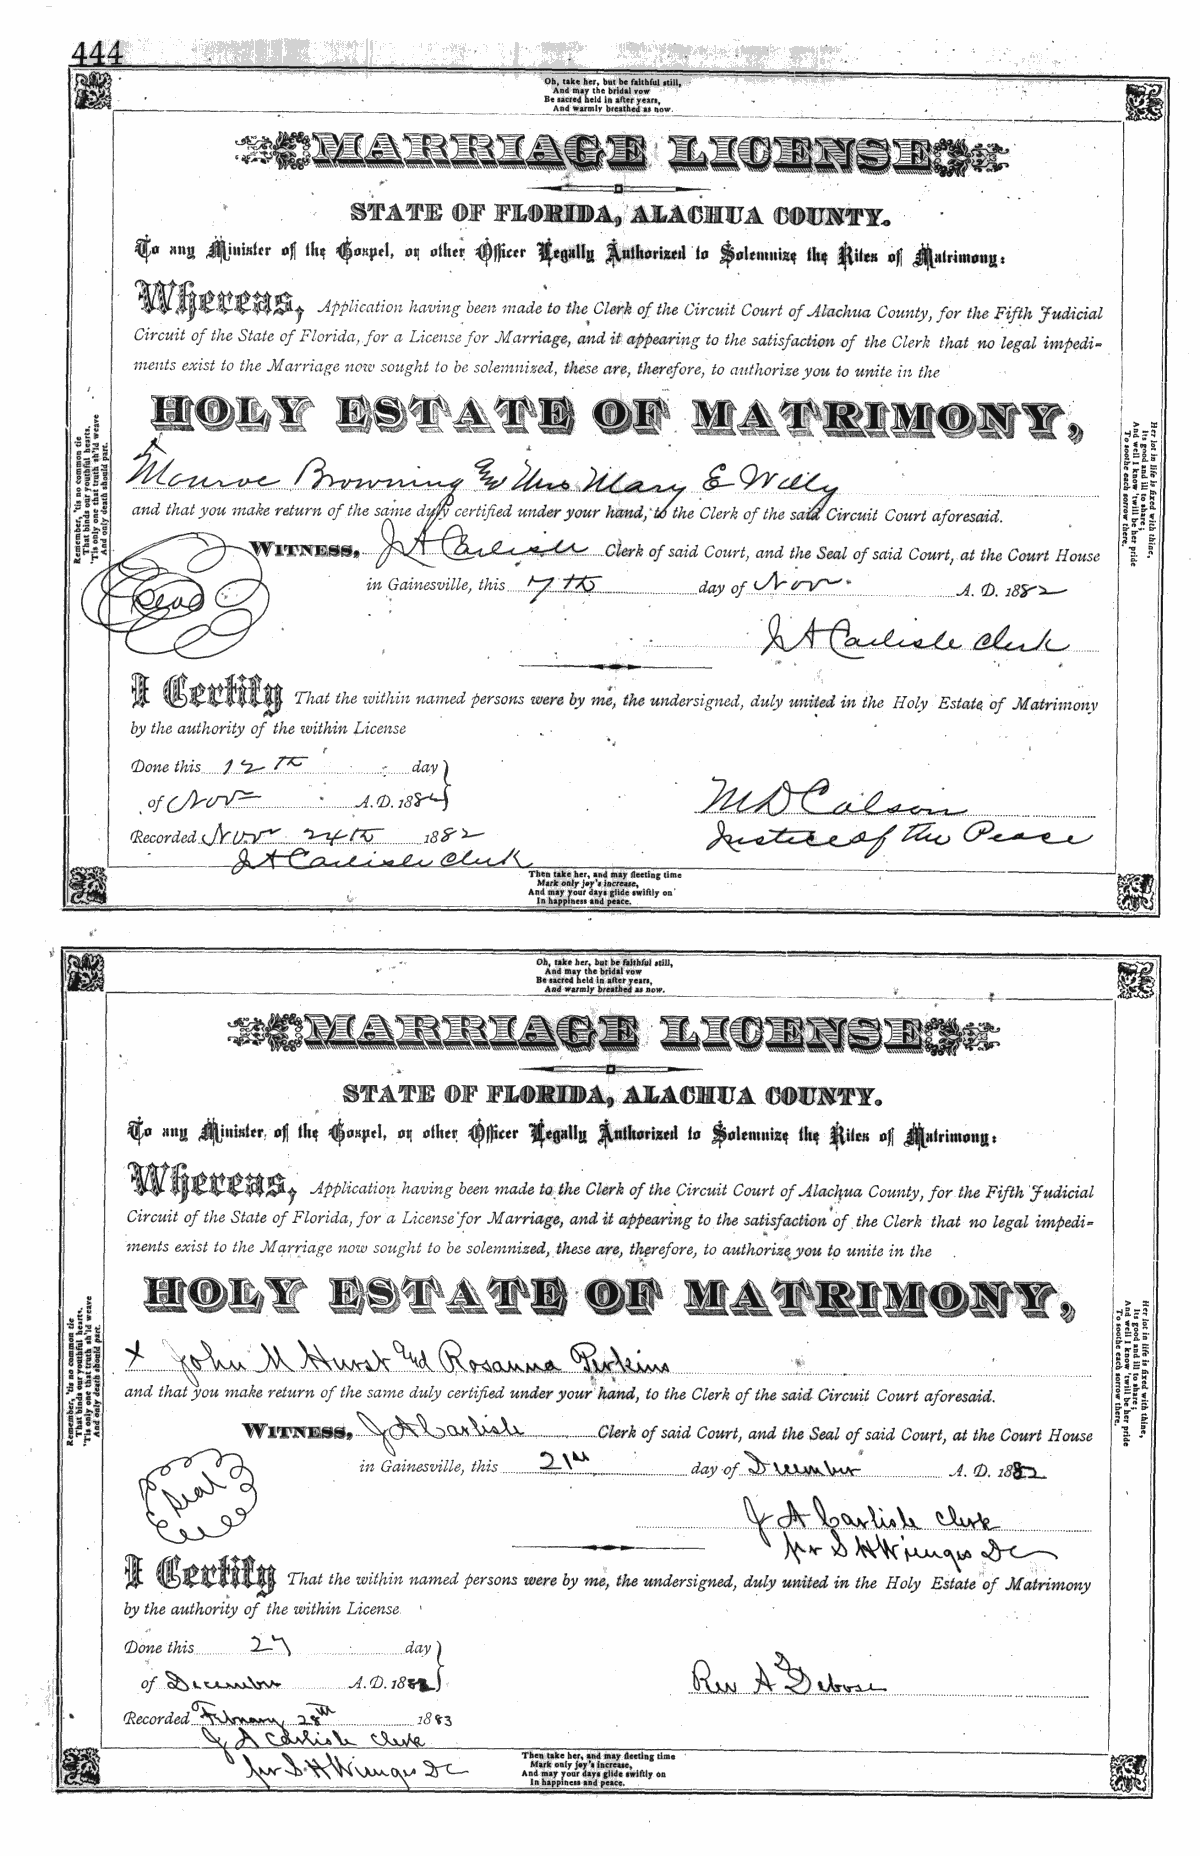 444
Oh, take her, but be faithful still,
And may the bridal vow
Be sacred held in after years,
And warmly breathed as now.
MARRIAGE LICENSE
STATE OF FLORIDA, ALACHUA COUNTY.
To any Minister of the Gospel, or other Officer Legally Authorized to Solemnize the Rites of Matrimony:
Whereas, Application having been made to the Clerk of the Circuit Court of Alachua County, for the Fifth Judicial
Circuit of the State of Florida, for a License for Marriage, and it appearing to the satisfaction of the Clerk that no legal impedi-
ments exist to the Marriage now sought to be solemnized, these are, therefore, to authorize you to unite in the
HOLY ESTATE OF MATRIMONY,
Monroe Browning and Mrs Mary E Willy
and that you make return of the same duly certified under your hand, to the Clerk of the said Circuit Court aforesaid.
WITNESS, J A Carlisle Clerk of said Court, and the Seal of said Court, at the Court House
in Gainesville, this 7th day of Nov. A. D. 1882
Seal
J A Carlisle Clerk
I Certify That the within named persons were by me, the undersigned, duly united in the Holy Estate of Matrimony
by the authority of the within License
Done this 12th day
of Nov A. D. 1882
M D Colson
Recorded Nov 24th 1882
Justice of the Peace
J A Carlisle Clerk
Remember, 'tis no common tie
That binds our youthful hearts,
'Tis only one that truth sh'ld weave
And only death should part.
Her lot in life is fixed with thine,
Its good and ill to share;
And well I know 'twill be her pride
To soothe each sorrow there.
Then take her, and may fleeting time
Mark only joy's increase,
And may your days glide swiftly on
In happiness and peace.
Oh, take her, but be faithful still,
And may the bridal vow
Be sacred held in after years,
And warmly breathed as now.
MARRIAGE LICENSE
STATE OF FLORIDA, ALACHUA COUNTY.
To any Minister of the Gospel, or other Officer Legally Authorized to Solemnize the Rites of Matrimony:
Whereas, Application having been made to the Clerk of the Circuit Court of Alachua County, for the Fifth Judicial
Circuit of the State of Florida, for a License for Marriage, and it appearing to the satisfaction of the Clerk that no legal impedi-
ments exist to the Marriage now sought to be solemnized, these are, therefore, to authorize you to unite in the
HOLY ESTATE OF MATRIMONY,
x John M Hurst and Rosanna Perkins
and that you make return of the same duly certified under your hand, to the Clerk of the said Circuit Court aforesaid.
WITNESS, J A Carlisle Clerk of said Court, and the Seal of said Court, at the Court House
in Gainesville, this 21st day of December A. D. 1882
Seal
J A Carlisle Clerk
pr S H Wienges DC
I Certify That the within named persons were by me, the undersigned, duly united in the Holy Estate of Matrimony
by the authority of the within License
Done this 27 day
of December A. D. 1882
Rev A Debose
Recorded February 28th 1883
J A Carlisle Clerk
pr S H Wienges DC
Remember, 'tis no common tie
That binds our youthful hearts,
'Tis only one that truth sh'ld weave
And only death should part.
Her lot in life is fixed with thine,
Its good and ill to share;
And well I know 'twill be her pride
To soothe each sorrow there.
Then take her, and may fleeting time
Mark only joy's increase,
And may your days glide swiftly on
In happiness and peace.